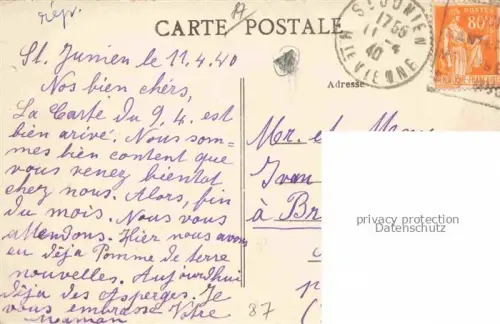 rép.
A
CARTE POSTALE
St. Junien le 11.4.40
Nos bien chérs,
La Carte du 9.4. est
bien arivé. Nous som-
mes bien content que
vous venez bientot
chez nous. Alors, fin
du mois. Nous vous
attendons. Hier nous avons
eu déja Pomme de terre
nouvelles. Aujourdhui
déja des Asperges. Je
vous embrasse Votre
Maman
87
ST JUNIEN
1755
11-4
40
HTE VIENNE
80c
Adresse
Mr. et
Ivan
à Br
privacy protection
Datenschutz